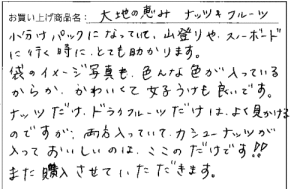 お買い上げ商品名： 大地の恵み ナッツ&フルーツ
小分けパックになっていて、山登りや、スノーボード
に行く時に、とても助かります。
袋のイメージ写真も、色んな色が入っている
からか、かわいくて女子うけも良いです。
ナッツだけ、ドライフルーツだけは、よく見かける
のですが、両方入っていて、カシューナッツが
入っておいしいのは、ここのだけです!!
また購入させていただきます。